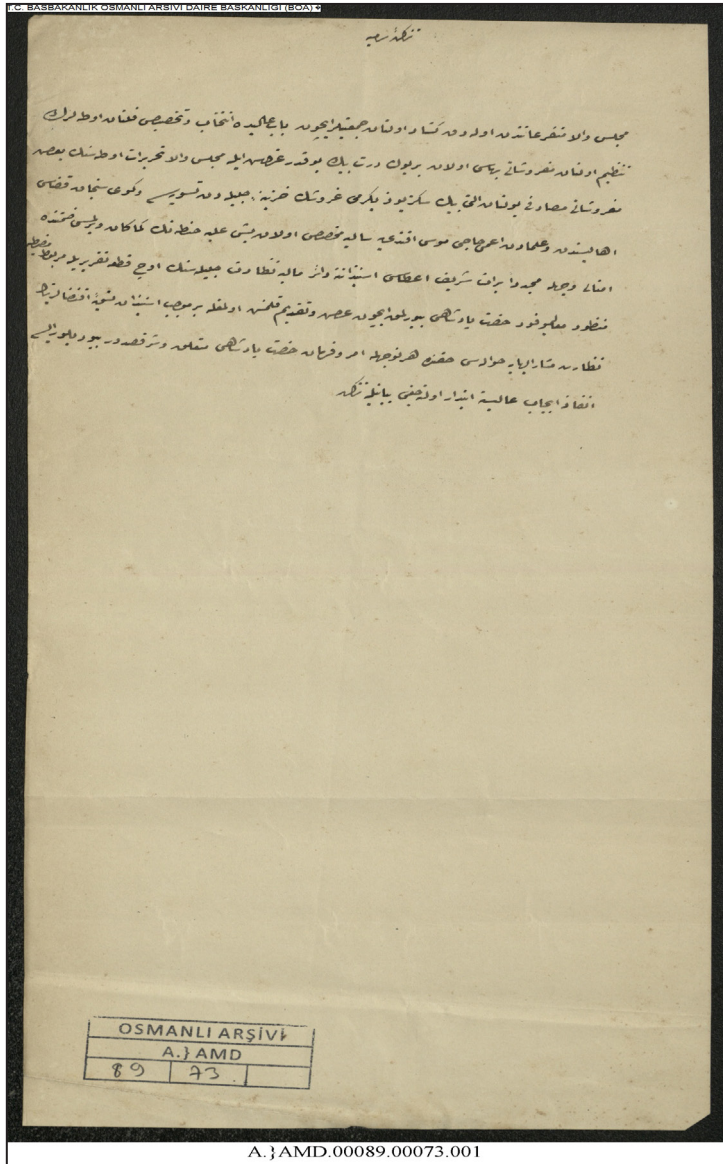 T.C. BASBAKANLIK OSMANLI ARSIVI DAIRE BASKANLIGI (BOA)
مجلس والا متفرعاتندن اوله رق كشاد اولنان جمعيتلر ايچون باب عاليده انتخاب و تخصيص قلنان اوطه لرك
تنظيم اولنان مفروشاتى بهاسى اولان غروش ايله مجلس والا تحريرات اوطه سنك بعض
مفروشاتى مصارفى بولنان التى بيك سكز يوز يكرمى غروشك خزينه جليله دن تسويه سى سنجاق قضاسى
اهاليسندن و علمادن اعمى حاجى موسى افندى يه ساليانه مخصص اولان حنطه نك كما كان ويرلمسى ضمننده
امثالى وجهله مجددا برات شريف اعطاسى استيذانه دائر ماليه نظارت جليله سنك اوچ قطعه تقريريله مربوط
منظور حضرت پادشاهى بيورلمق ايچون عرض و تقديم قلنمش اولمغله بر موجب استيذان
نظارت مشار اليهايه حواله سى حقنده هر نه وجهله امر و فرمان حضرت پادشاهى متعلق و شرفصدور بيوريلور ايسه
انفاذ ايجاب عاليسنه ابتدار اولنه جغى بيانيله تذكره
OSMANLI ARŞİVİ
A.}AMD
89 73
A.}AMD.00089.00073.001